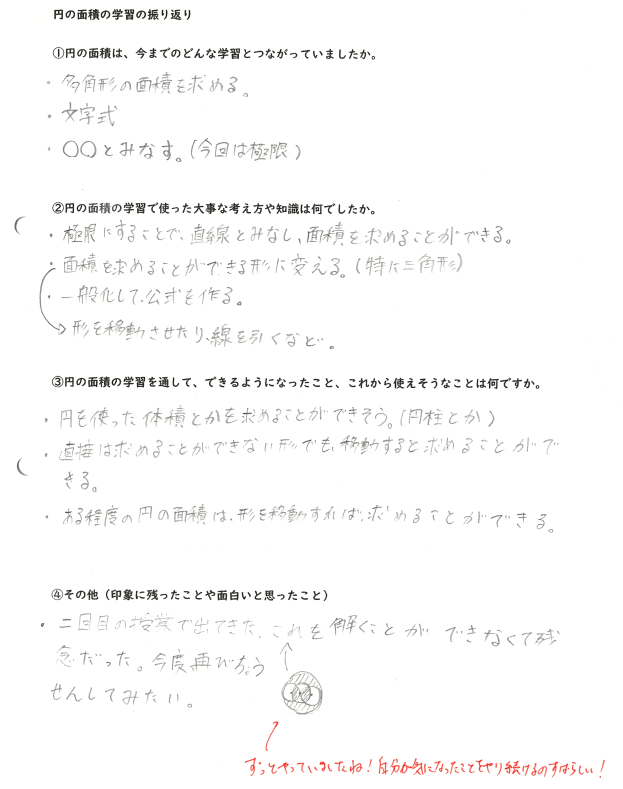 円の面積の学習の振り返り
①円の面積は、今までのどんな学習とつながっていましたか。
・多角形の面積を求める。
・文字式
・〇〇とみなす。(今回は極限)
②円の面積の学習で使った大事な考え方や知識は何でしたか。
・極限にすることで、直線とみなし、面積を求めることができる。
・面積を求めることができる形に変える。(特に三角形)
・一般化して、公式を作る。
→形を移動させたり、線を引くなど。
③円の面積の学習を通して、できるようになったこと、これから使えそうなことは何ですか。
・円を使った体積とかを求めることができそう。(円柱とか)
・直接は求めることができない形でも、移動すると求めることがで
きる。
・ある程度の円の面積は、形を移動すれば、求めることができる。
④その他（印象に残ったことや面白いと思ったこと）
・二回目の授業で出てきた、これを解くことができなくて残
念だった。今度再びちょう
せんしてみたい。
ずっとやっていましたね！自分が気になったことをやり続けるのすばらしい！